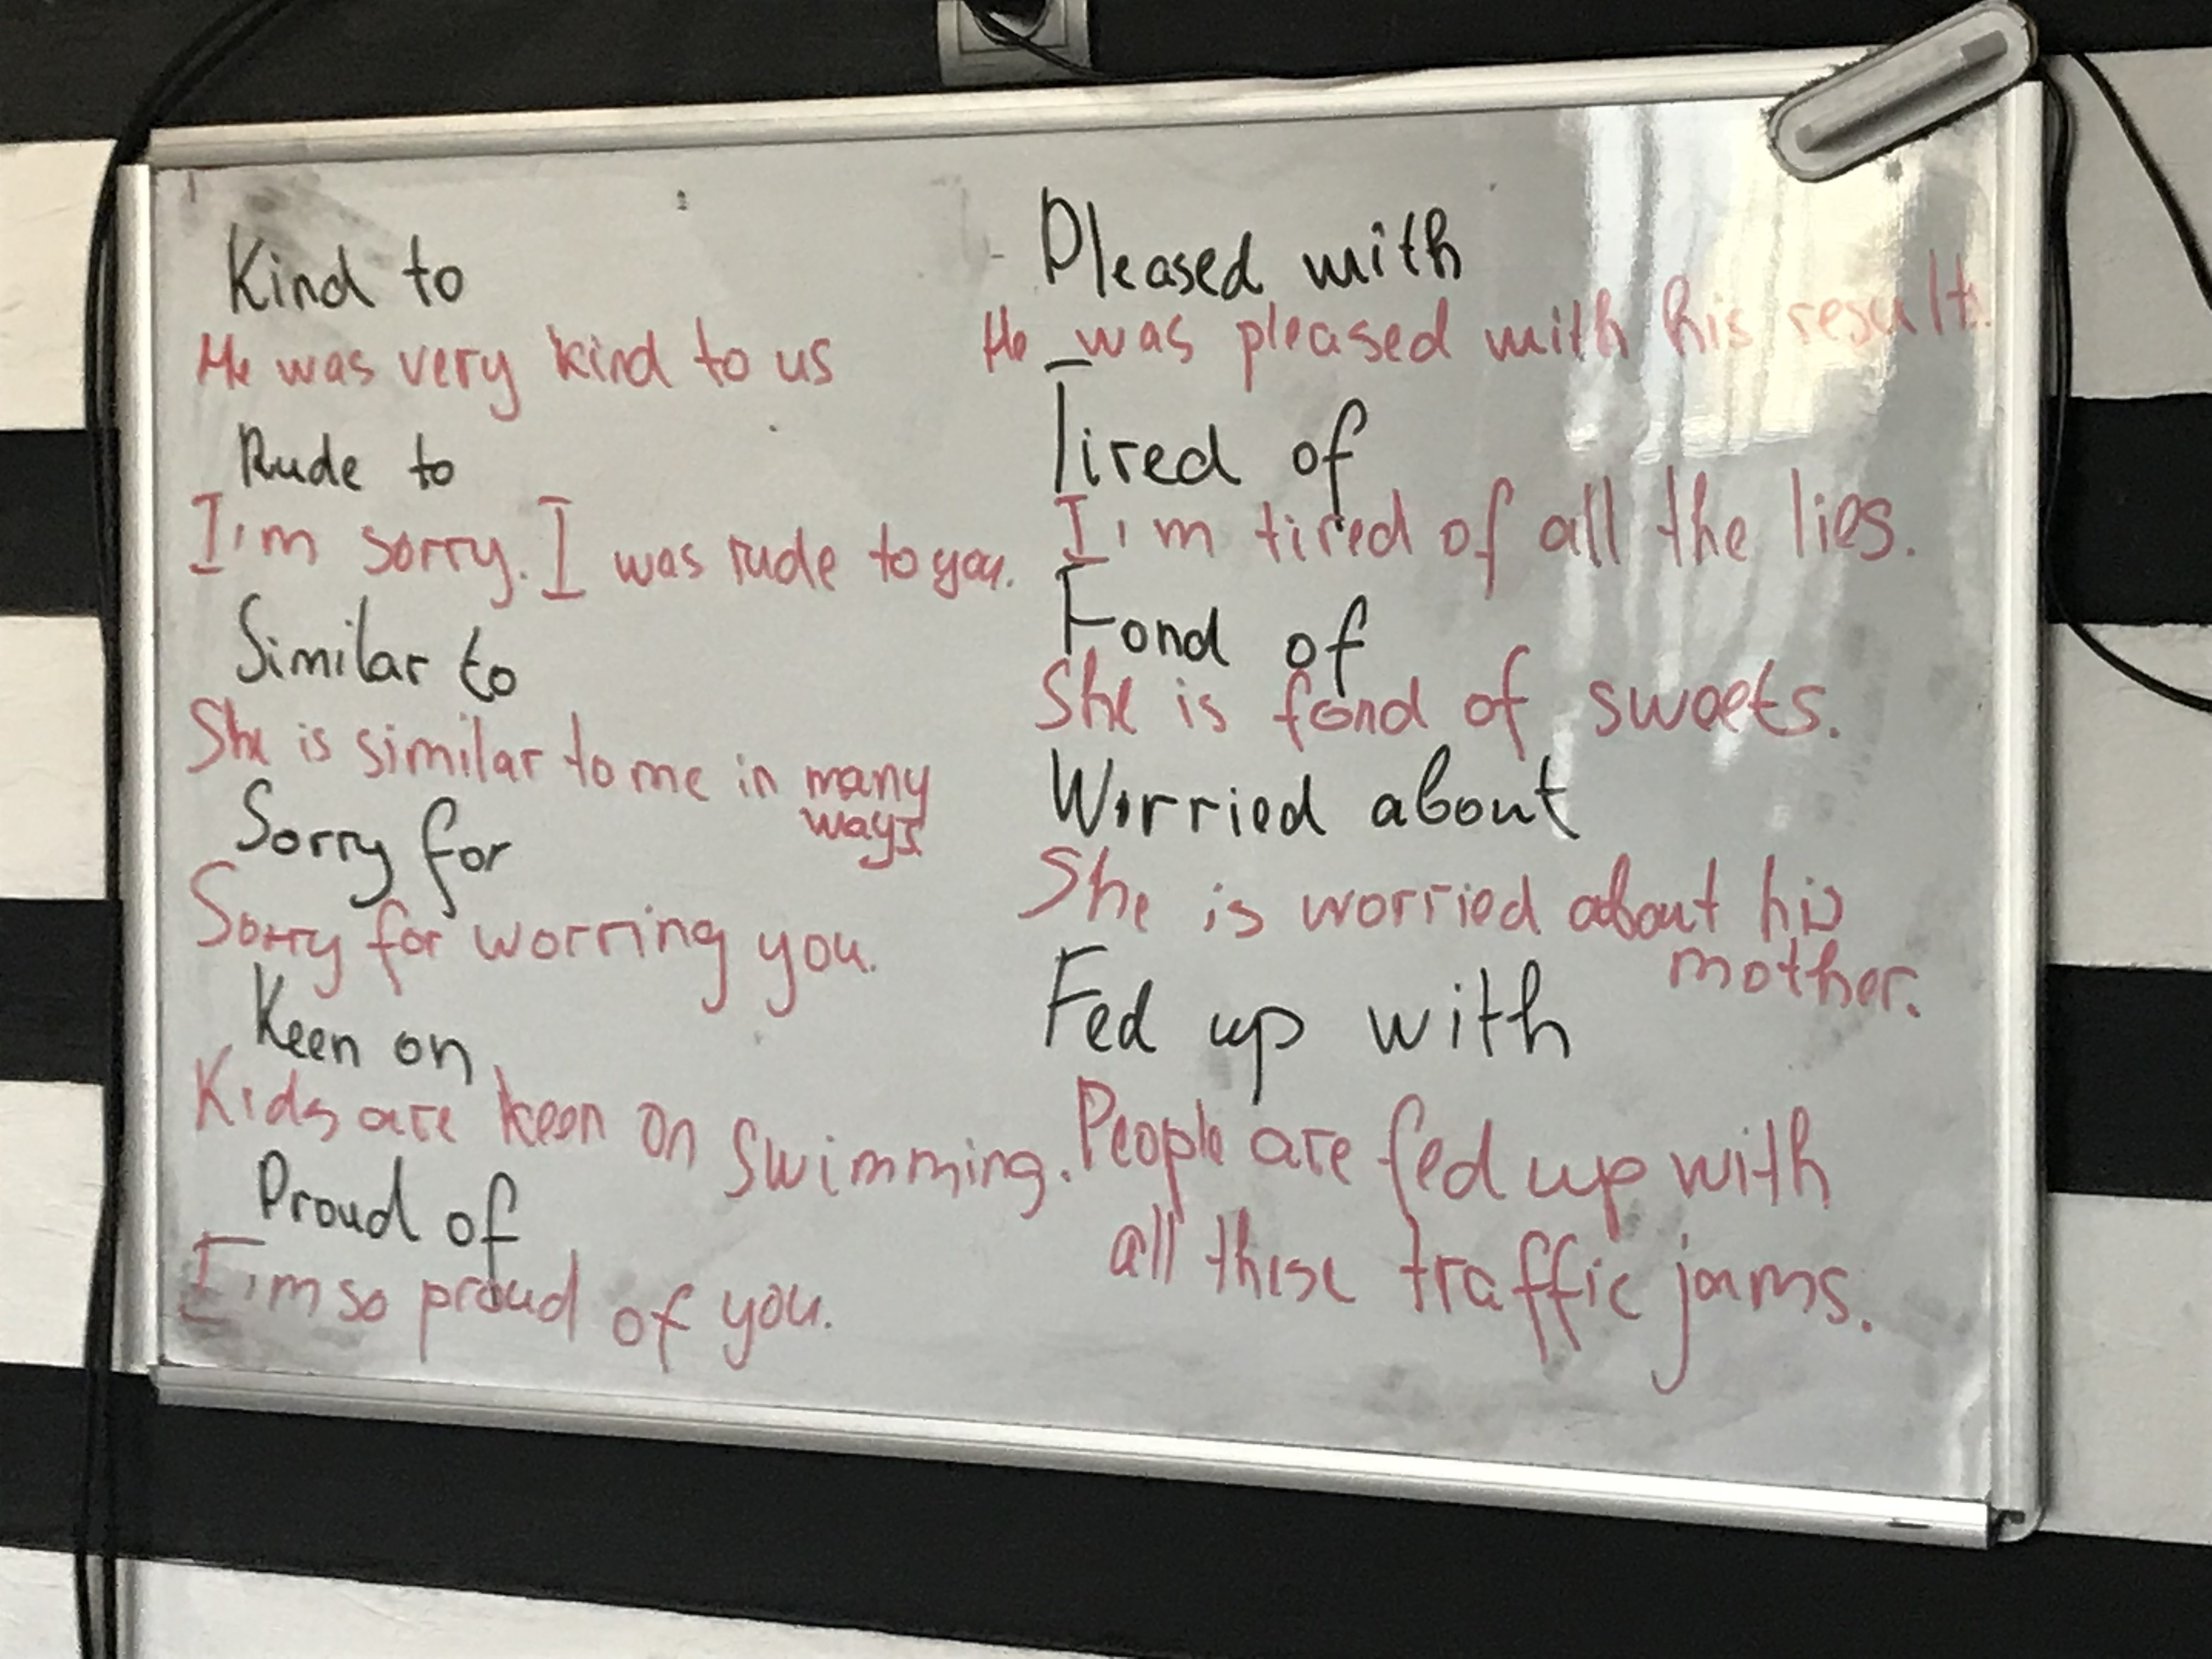 Kind to
He was very kind to us
Rude to
I'm sorry. I was rude to you.
Similar to
She is similar to me in many
ways
Sorry for
Sorry for worring you.
Keen on
Kids are keen on swimming.
Proud of
I'm so proud of you.
Pleased with
He was pleased with his results.
Tired of
I'm tired of all the lies.
Fond of
She is fond of sweets.
Worried about
She is worried about his
mother.
Fed up with
People are fed up with
all these traffic jams.